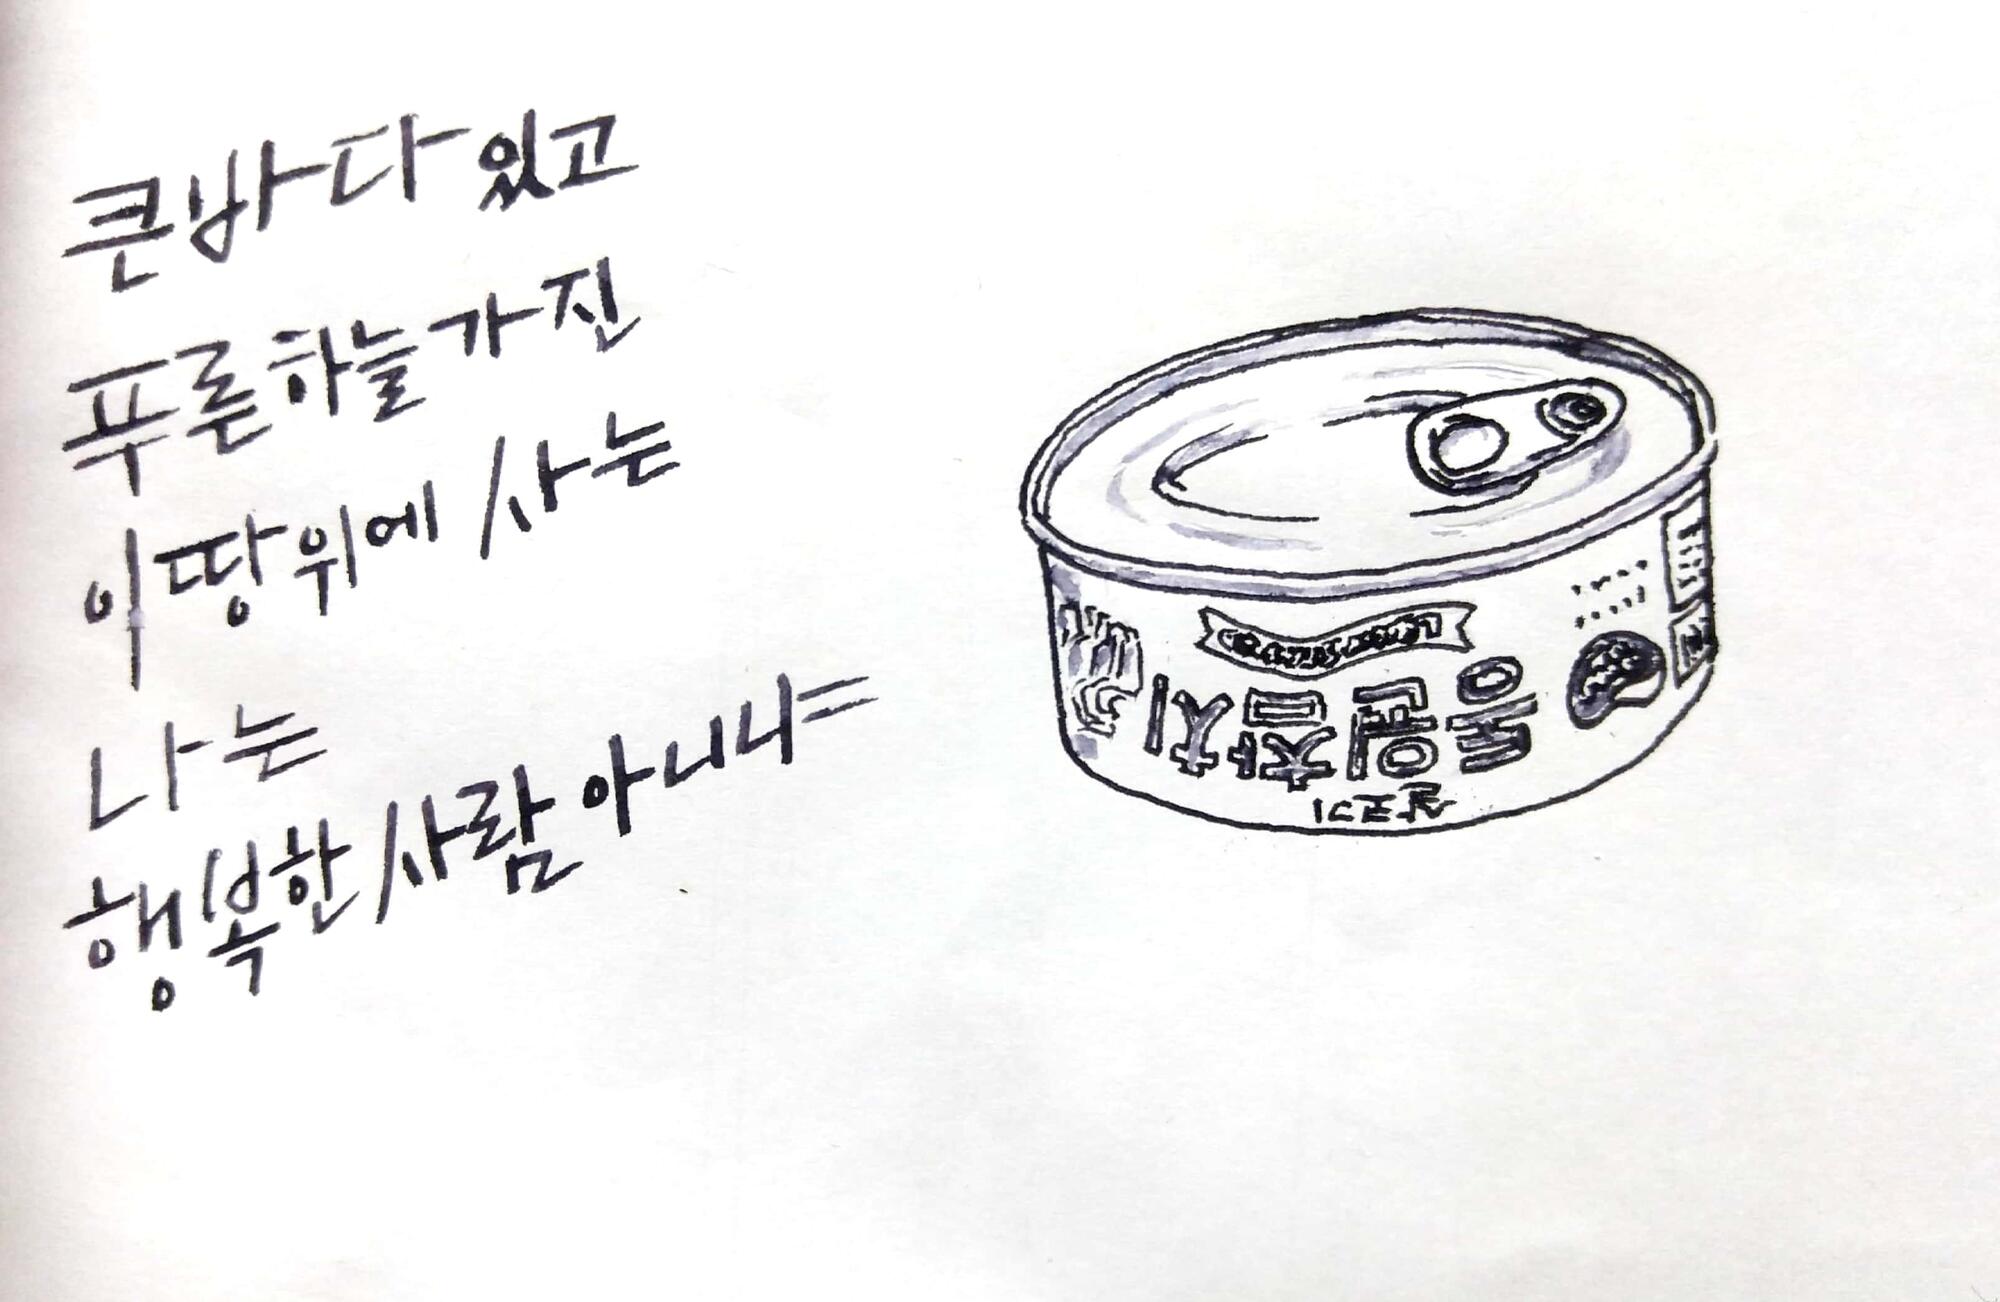 큰바다 있고
푸른하늘 가진
이 땅위에 사는
나는
행복한 사람 아니냐
동원참치